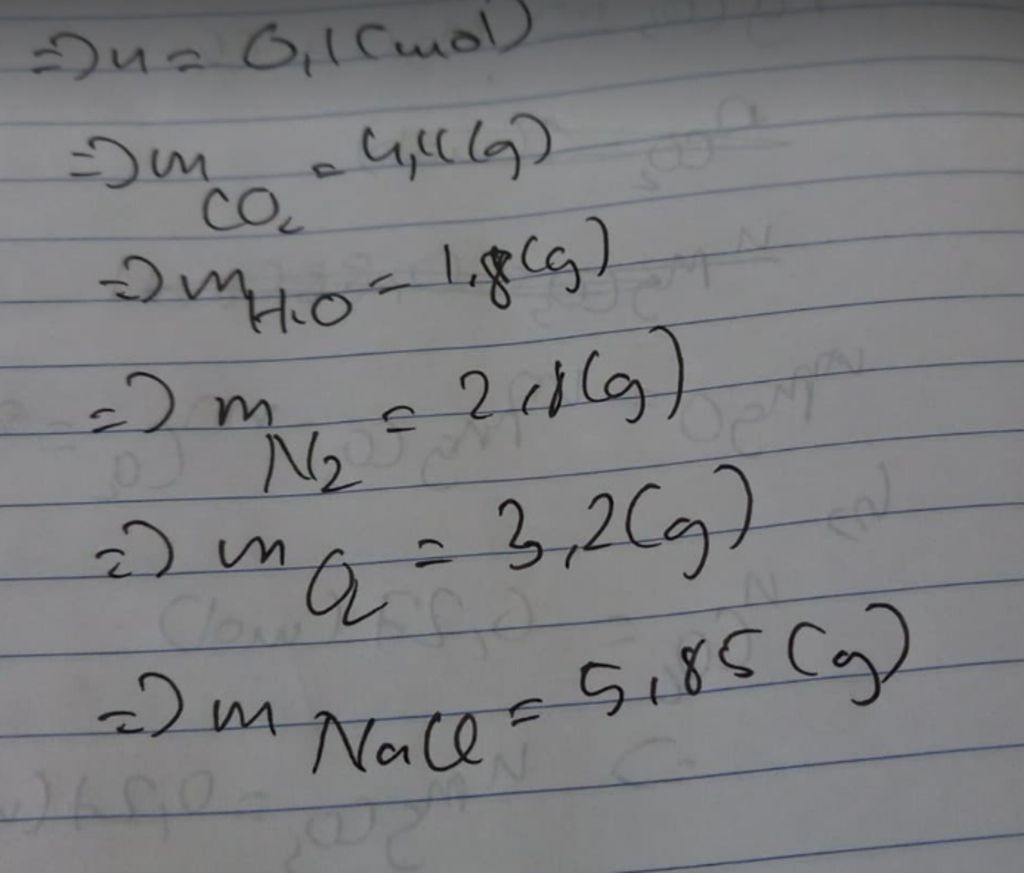 => n = 0,1 (mol)
=> m CO2 = 4,4 (g)
=> m H2O = 1,8 (g)
=> m N2 = 2,8 (g)
=> m O2 = 3,2 (g)
=> m NaCl = 5,85 (g)